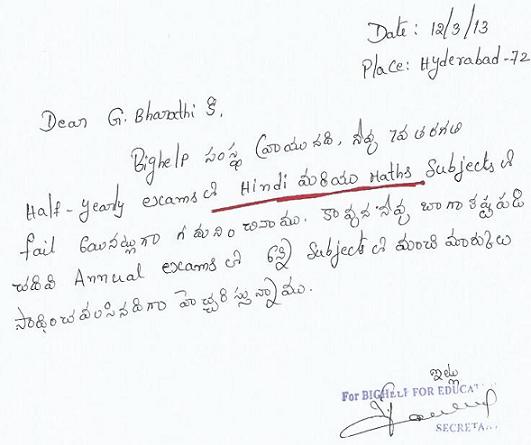 Date: 12/3/13
Place: Hyderabad-72
Dear G. Bharathi కి,
Bighelp సంస్థ వ్రాయునది, నీవు 7వ తరగతి
Half-yearly exams లో Hindi మరియు Maths Subjects లో
fail అయినట్లుగా గమనించినాము. కావున నీవు బాగా కష్టపడి
చదివి Annual exams లో అన్ని Subjects లో మంచి మార్కులు
సాధించవలసినదిగా హెచ్చరిస్తున్నాము.
ఇట్లు
For BIGHELP FOR EDUCAT
SECRETA